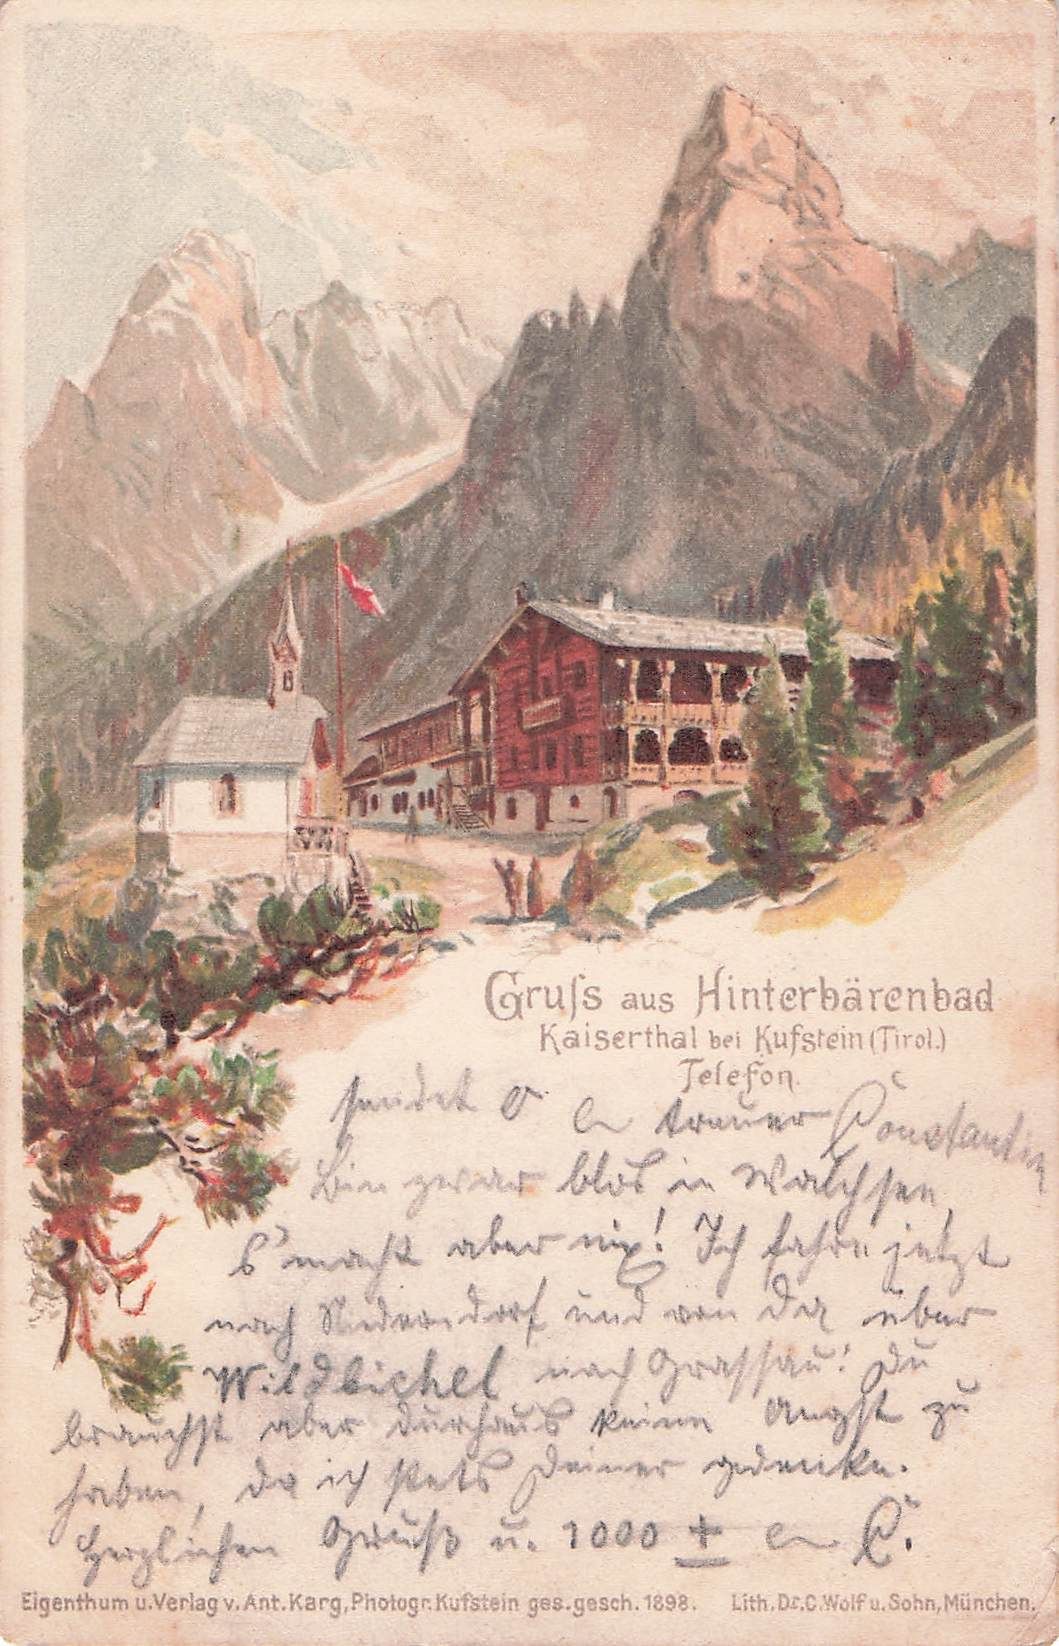 Gruſs aus Hinterbärenbad
Kaiserthal bei Kufstein (Tirol.)
Telefon.
sendet
treuer Constantin
Bin zwar blos in Walchsee,
s'macht aber nix! Ich fahre jetzt
nach Niederndorf und von da über
Wildbichel nach Grassau! Du
brauchst aber durchaus keine Angst zu
haben, da ich stets Deiner gedenke.
Herzlichen Gruß u. 1000 C.
Eigenthum u. Verlag v. Ant. Karg, Photogr. Kufstein ges. gesch. 1898. Lith. Dr. C. Wolf u. Sohn, München.